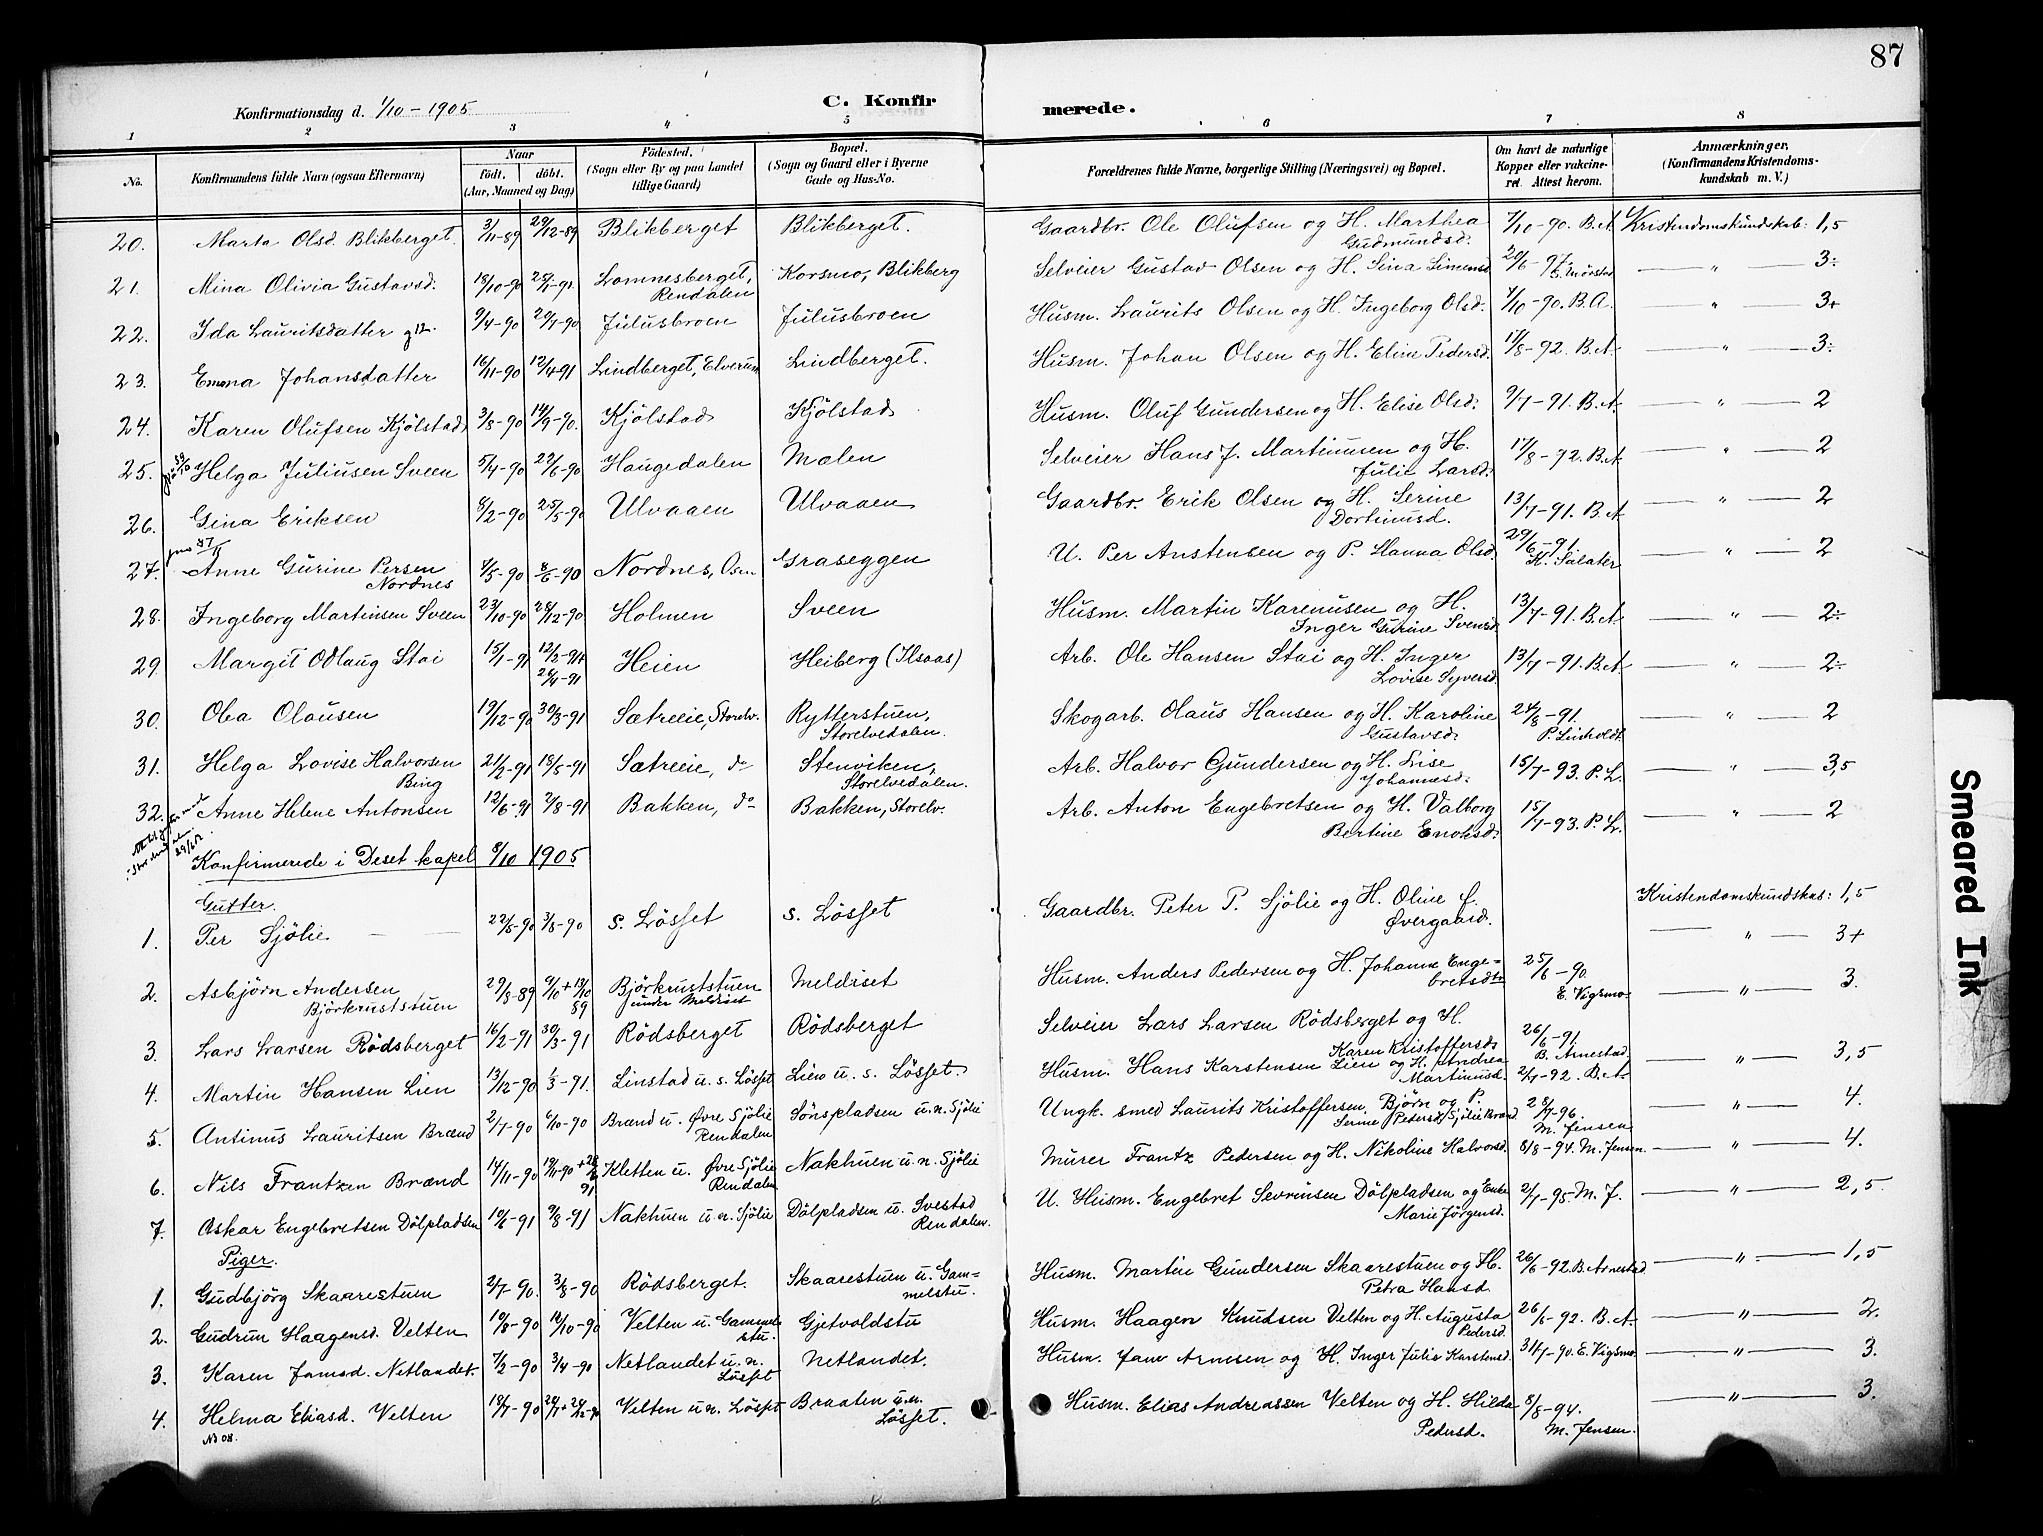 87
Konfirmationsdag d. 1/10 - 1905
C. Konfirmerede.
1 2 3 4 5 6 7 8
No.
Konfirmandens fulde Navn (ogsaa Efternavn)
Naar
födt. döbt.
(Aar, Maaned og Dag)
Födested.
(Sogn eller By og paa Landet
tillige Gaard)
Bopæl.
(Sogn og Gaard eller i Byerne
Gade og Hus-No.
Forældrenes fulde Navne, borgerlige Stilling (Næringsvei) og Bopæl.
Om havt de naturlige
Kopper eller vakcine-
ret. Attest herom.
Anmærkninger.
(Konfirmandens Kristendoms-
kundskab m. V.)
20. Marta Olsd. Blikberget. 3/11-89 29/12-89 Blikberget Blikberget. Gaardbr. Ole Olufsen og H. Marthea Gudmundsd. 7/10-90. B.A. Kristendomskundskab: 1,5
21. Mina Olivia Gustavsd. 18/10-90 25/1-91. Lomnesberget, Rendalen Korsmo, Blikberg Selveier Gustav Olsen og H. Sina Simensd. 20/6-97. " 3÷
22. Ida Lauritsdatter 9/4-90 Julusbroen Julusbroen Husm. Laurits Olsen og H. Ingeborg Olsd. 7/10-90. B.A. " 3+
23. Emma Johansdatter 16/11-90 12/4-91 Lindberget, Elverum Lindberget. Husm. Johan Olsen og H. Eline Pedersd. 17/8-92. B.A. " 3÷
24. Karen Olufsen Kjölstad 3/8-90 14/9-90. Kjölstad Kjölstad Husm. Oluf Gundersen og H. Elise Olsd. 9/7-91. B.A. " 2
25. Helga Juliusen Sveen 5/4-90 29/6-90 Haugedalen Malen Selveier Hans J. Martinusen og H. Julie Larsd. 17/8-92. B.A. " 2
26. Gina Eriksen 8/2-90 25/5-90 Ulvaaen Ulvaaen Gaardbr. Erik Olsen og H. Serine Dortinusd. 13/7-91. B.A. " 2
27. Anne Gurine Persen Nordnes 4/5-90 8/6-90 Nordnes, Osen Graseggen U. Per Anstensen og P. Hanna Olsd. 29/6-91 " 2
28. Ingeborg Martinsen Sveen 23/10-90 28/12-90. Holmen Sveen Husm. Martin Karenusen og H. Inger Gurine Svensd. 13/7-91. B.A. " 2÷
29. Margit Odlaug Stai 15/1-91 12/2-91+ 26/4-91 Heien Heiberg (Ilsaas) Arb. Ole Hansen Stai og H. Inger Lovise Syversd. 13/7-91. B.A. " 2÷
30. Olea Olausen 19/12-90 30/3-91 Sætreeie, Storelv. Rytterstuen, Storelvedalen. Skogarb. Olaus Hansen og H. Karoline Gustavsd. 24/8-91. P. Linholdt " 2
31. Helga Lovise Halvorsen Bing 21/2-91 18/5-91 Sætreeie, do Stenviken, Storelvedalen. Arb. Halvor Gundersen og H. Lise Johannesd. 15/7-93. P.L. " 3,5
32. Anne Helene Antonsen 12/6-91 2/8-91 Bakken, do Bakken, Storelv. Arb. Anton Engebretsen og H. Valborg Bertine Enoksd. 15/7-93. P.L. " 2
Konfirmerede i Deset kapel 8/10 1905
Gutter.
1. Per Sjölie 22/5-90 3/8-90 s. Lösset s. Lösset Gaardbr. Peter P. Sjölie og H. Oline J. Øvergaard. Kristendomskundskab: 1,5
2. Asbjörn Andersen Björkruststuen 29/8-89 6/10+13/10 89 Björkruststuen under Meldiset Meldiset Husm. Anders Pedersen og H. Johanne Engebretsdtr 25/6-90. E. Vigsmo " 3+
3. Lars Larsen Rödsberget 16/2-91 30/3-91 Rödsberget Rödsberget Selveier Lars Larsen Rödsberget og H. Karen Kristoffersd. 26/6-91. B. Arnestad. " 3.
4. Martin Hansen Lien 13/12-90 1/3-91. Linstad u. s. Lösset Lien u. s. Lösset. Husm. Hans Karstensen Lien og H. Andrea Martinusd. 2/7-92. B.A. " 3,5
5. Antinus Lauritsen Brænd 2/7-90 6/10-90 Brænd u. Øvre Sjölie Rendalen Sönspladsen u. n. Sjölie Ungk. smed Laurits Kristoffersen Björn og P. Serine Pedersd. Sjölie Brænd. 28/7-96. M. Jensen " 4.
6. Nils Frantzen Brænd 14/11-90 Kletten u. Øvre Sjölie Rendalen Nakhuen u. n. Sjölie Murer Frantz Pedersen og H. Nikoline Halvorsd. 8/8-94. M. Jensen " 4.
7. Oskar Engebretsen Dölpladsen 10/6-91 9/8-91 Nakhuen u. n. Sjölie Dölpladsen u. Svestad Rendalen. U. Husm. Engebret Sevrinsen Dölpladsen og Enke Marie Jörgensd. 2/7-95 M.J. " 2,5
Piger.
1. Gudbjörg Skaarestuen 2/7-90. 3/8-90 Rödsberget. Skaarestuen u. Gammelstu. Husm. Martin Gundersen Skaarestuen og H. Petra Hansd. 26/6-92. B. Arnestad " 1,5
2. Gudrun Haagensd. Velten 10/8-90 Velten u. Gammelstu. Gjetvoldstu Husm. Haagen Knudsen Velten og H. Augusta Pedersd. 26/6-92. B.A. " 2.
3. Karen Jamsd. Netlandet. 7/2-90 3/4-90 Netlandet u. n. Lösset Netlandet. Husm. Jam Arnesen og H. Inger Julie Karstensd. 31/7-90. E. Vigsmo. " 3.
4. Helma Eliasd. Velten 19/7-90 Velten u. n. Lösset Braaten u. n. Lösset. Husm. Elias Andreassen Velten og H. Hilda Pedersd. 8/8-94. M. Jensen. " 3.
Smeared Ink